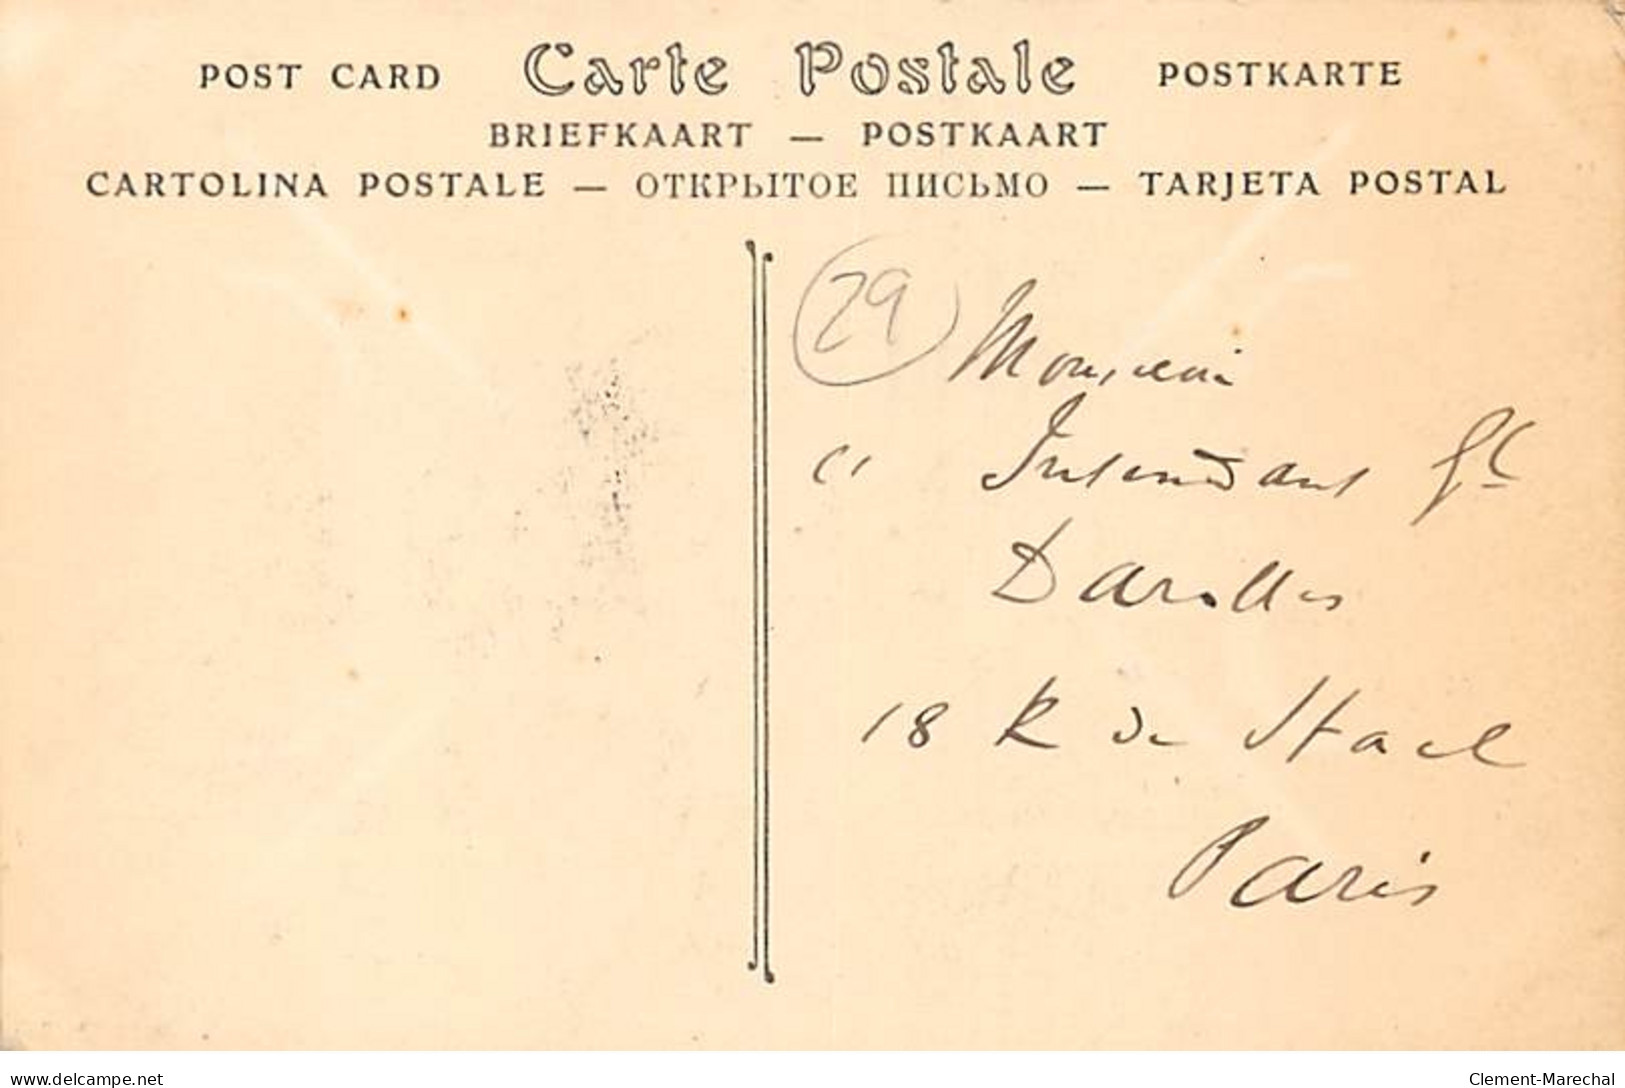 POST CARD Carte Postale POSTKARTE
BRIEFKAART — POSTKAART
CARTOLINA POSTALE — ОТКРЫТОЕ ПИСЬМО — TARJETA POSTAL
29
Monsieur
Intendant Gl
Darolles
18 R de Stael
Paris
www.delcampe.net
Clement-Marechal